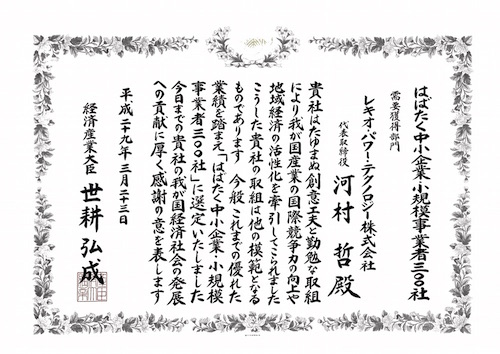 はばたく中小企業・小規模事業者三〇〇社
需要獲得部門
レキオ・パワー・テクノロジー株式会社
代表取締役 河村 哲 殿
貴社はたゆまぬ創意工夫と勤勉な取組
により我が国産業の国際競争力の向上や
地域経済の活性化を牽引してこられました
こうした貴社の取組は他の模範となる
ものであります 今般 これまでの優れた
業績を踏まえ「はばたく中小企業・小規模
事業者三〇〇社」に選定いたしました
今日までの貴社の我が国経済社会の発展
への貢献に厚く感謝の意を表します
平成二十九年三月二十三日
経済産業大臣 世耕弘成